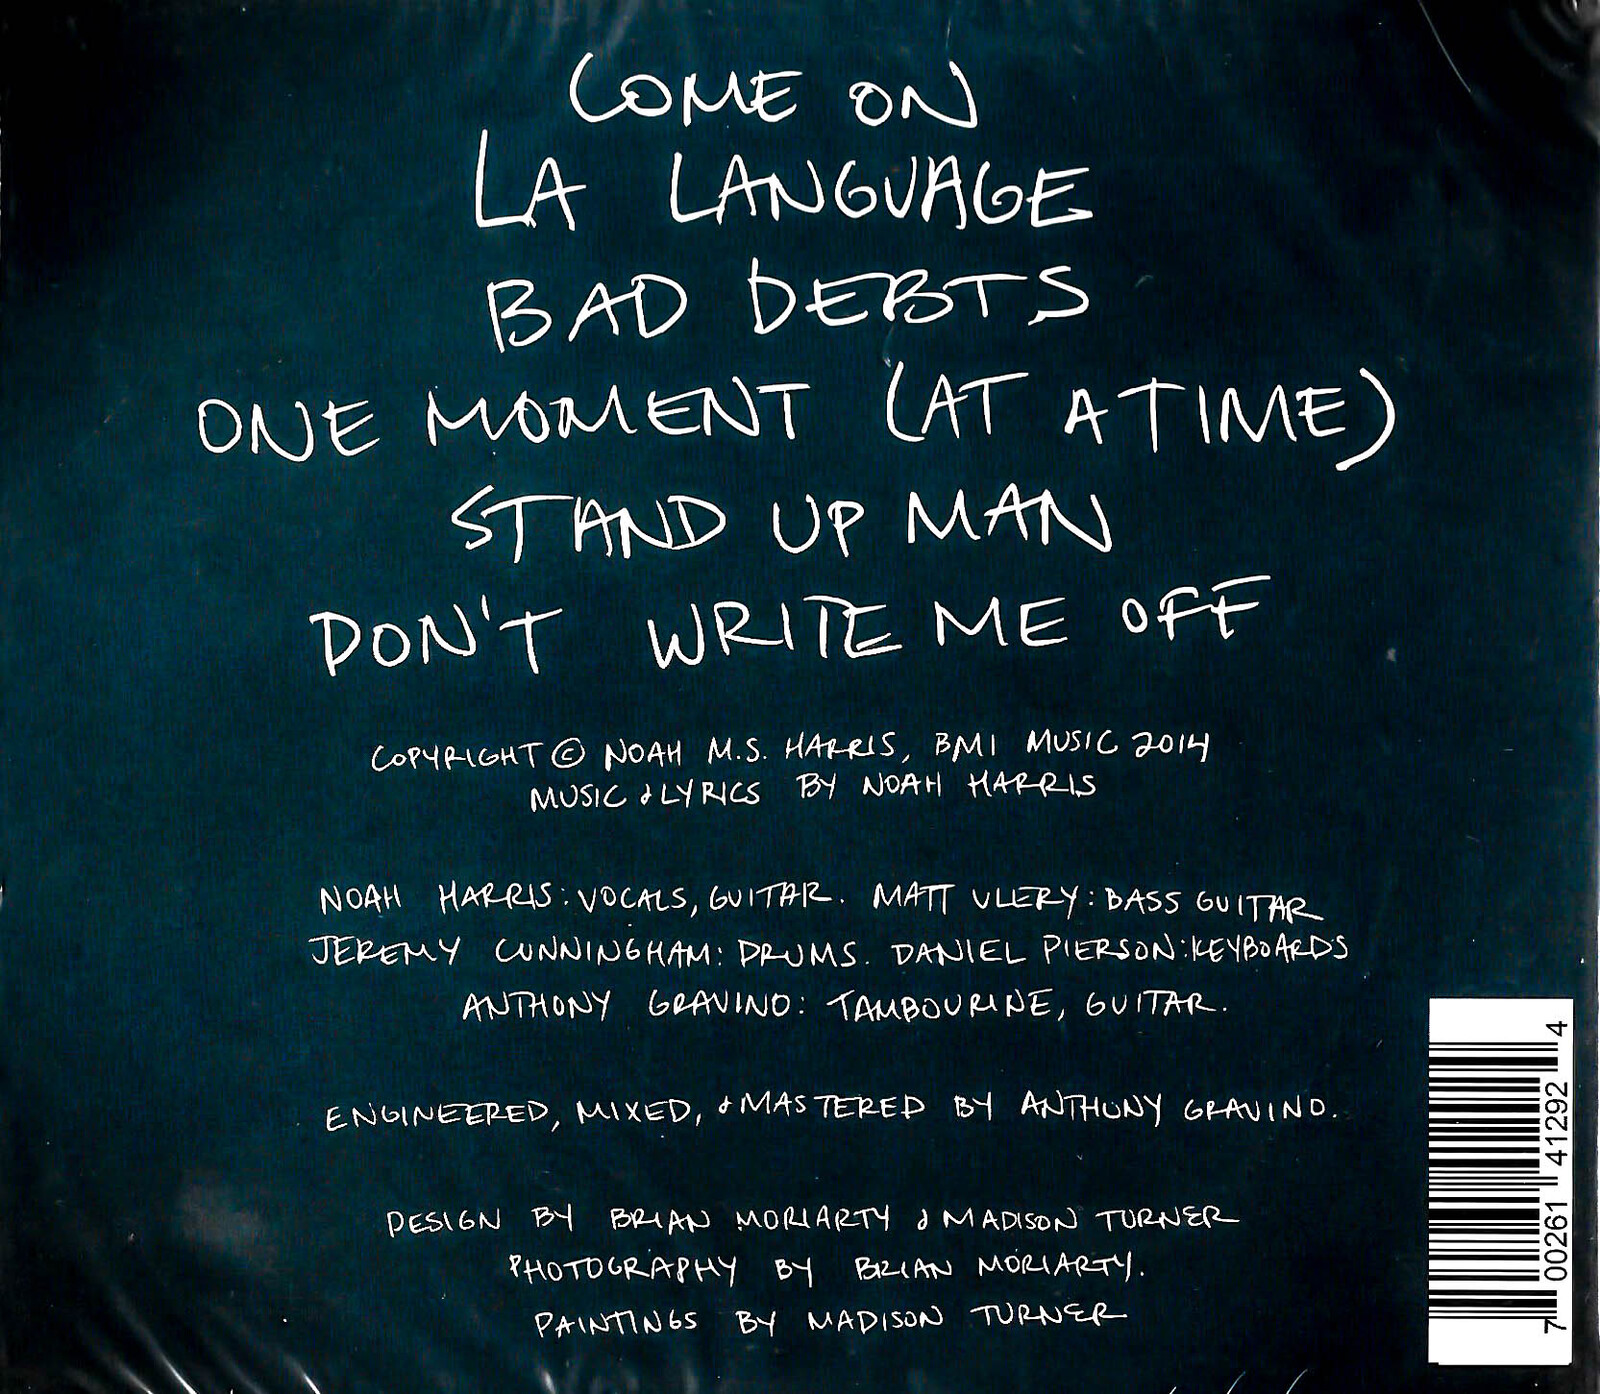 COME ON
LA LANGUAGE
BAD DEBTS
ONE MOMENT (AT A TIME)
STAND UP MAN
DON'T WRITE ME OFF
COPYRIGHT © NOAH M.S. HARRIS, BMI MUSIC 2014
MUSIC & LYRICS BY NOAH HARRIS
NOAH HARRIS: VOCALS, GUITAR. MATT ULERY: BASS GUITAR
JEREMY CUNNINGHAM: DRUMS. DANIEL PIERSON: KEYBOARDS
ANTHONY GRAVINO: TAMBOURINE, GUITAR.
ENGINEERED, MIXED, & MASTERED BY ANTHONY GRAVINO.
DESIGN BY BRIAN MORIARTY & MADISON TURNER
PHOTOGRAPHY BY BRIAN MORIARTY.
PAINTINGS BY MADISON TURNER
7 00261 41292 4